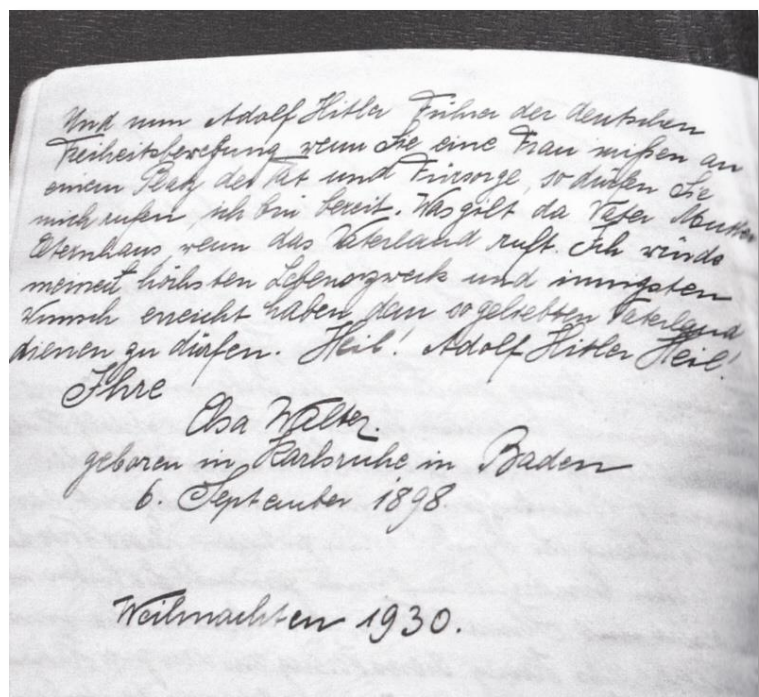 Und nun Adolf Hitler Führer der deutschen
Freiheitsbewegung wenn Sie eine Frau wißen an
einem Platz der Tat und Fürsorge, so dürfen Sie
mich rufen, ich bin bereit. Was gilt da Vater Mutter
Elternhaus, wenn das Vaterland ruft. Ich würde
meinen höchsten Lebenszweck und innigsten
Wunsch erreicht haben dem so geliebten Vaterland
dienen zu dürfen. Heil! Adolf Hitler Heil!
Ihre
Elsa Walter
geboren in Karlsruhe in Baden
6. September 1898.
Weihnachten 1930.